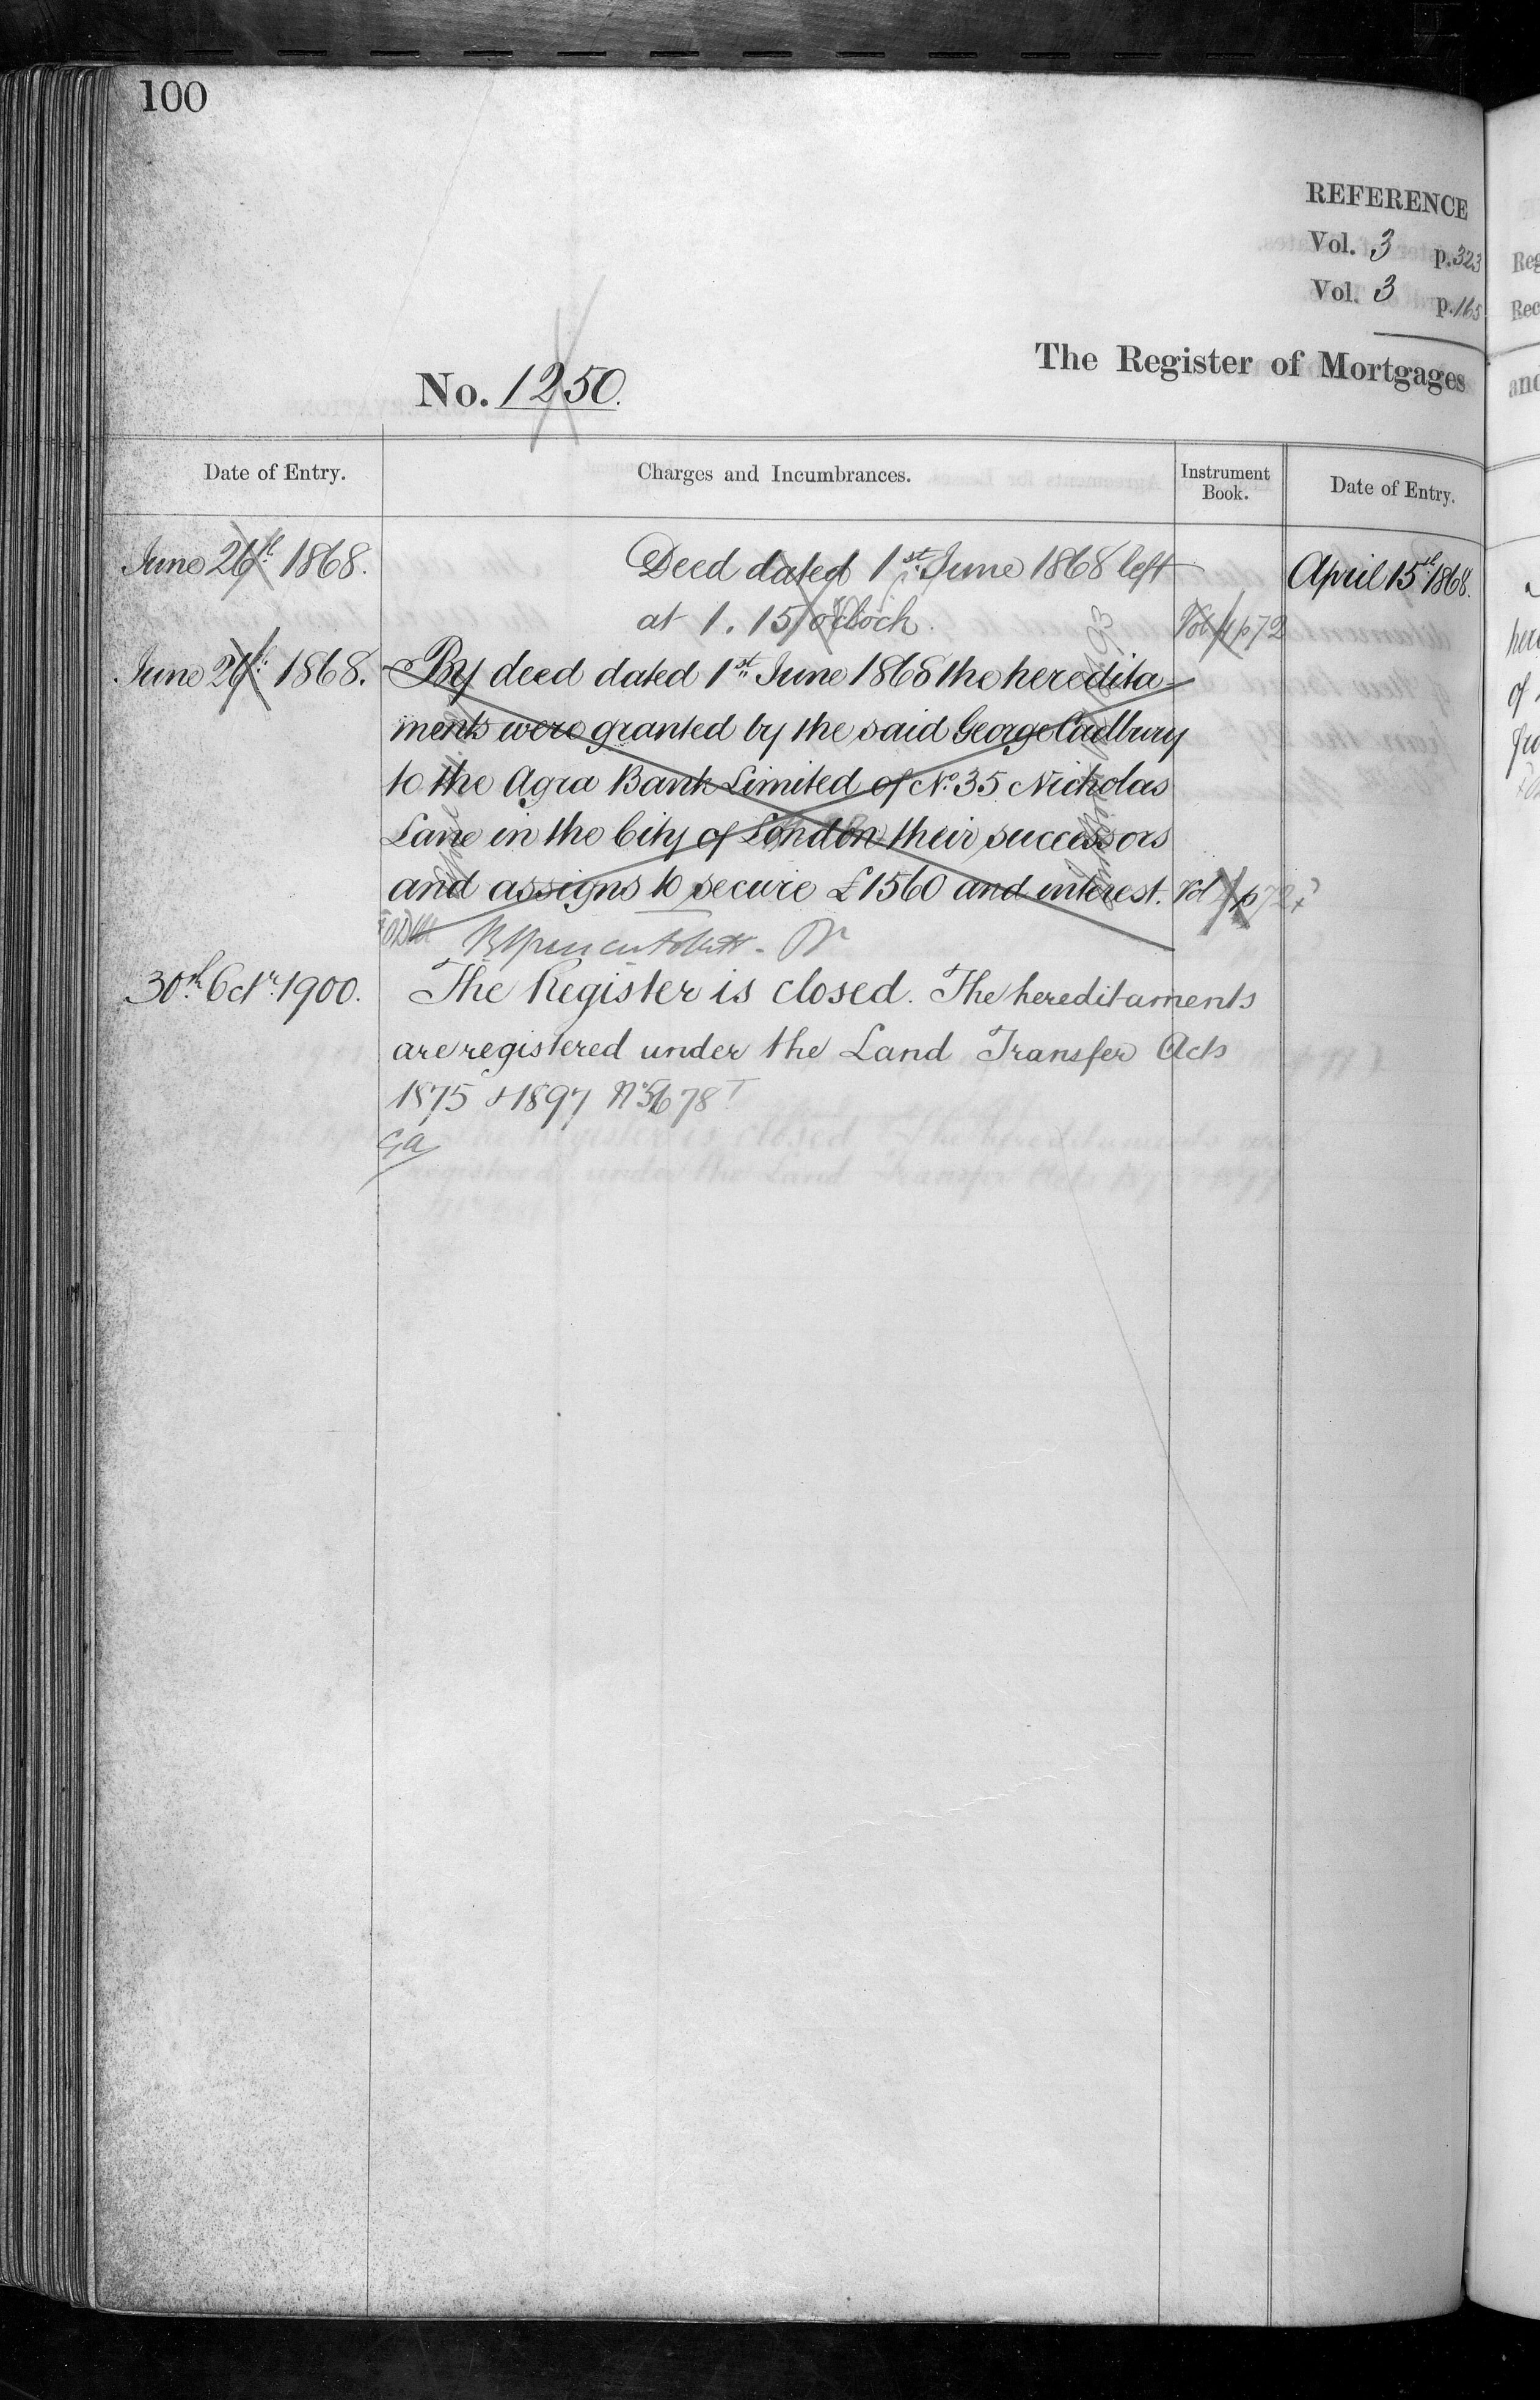 100
REFERENCE
Vol. 3 p. 323
Vol. 3 p. 165
The Register of Mortgages
No. 1250.
Date of Entry. Charges and Incumbrances. Instrument Book. Date of Entry.
June 26th 1868. Deed dated 1st June 1868 left April 15th 1868.
at 1.15 o'clock. Vol 4 p 72
June 26th 1868. By deed dated 1st June 1868 the heredita-
ments were granted by the said George Cadbury
to the Agra Bank Limited of No. 35 Nicholas
Lane in the City of London their successors
and assigns to secure £1560 and interest. Vol 4 p 72
30th Octr. 1900. The Register is closed. The hereditaments
are registered under the Land Transfer Acts
1875 & 1897 No.
GA